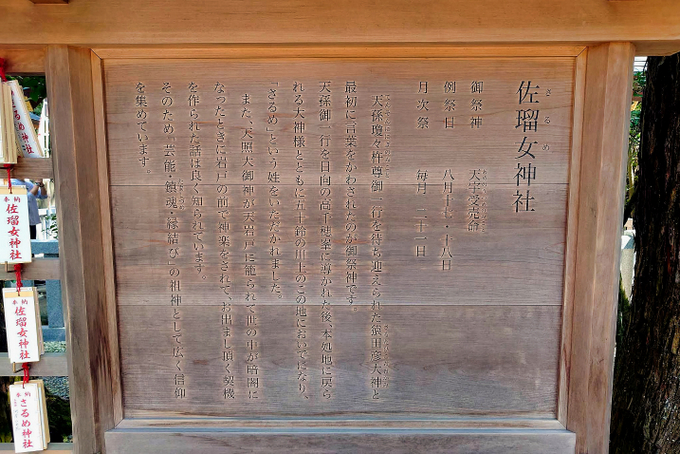 佐瑠女神社
さるめ
御祭神 天宇受売命
例祭日 八月十七・十八日
月次祭 毎月 二十一日
天孫瓊々杵尊御一行を待ち迎えられた猿田彦大神と
最初に言葉をかわされたのが御祭神です。
天孫御一行を日向の高千穂峯に導かれた後、本処地に戻ら
れる大神様とともに五十鈴の川上のこの地においでになり、
「さるめ」という姓をいただかれました。
また、天照大御神が天岩戸に籠られて世の中が暗闇に
なったときに岩戸の前で神楽をされて、お出まし頂く契機
を作られた話は良く知られています。
そのため「芸能・鎮魂・縁結び」の祖神として広く信仰
を集めています。
佐瑠女神社
奉納
佐瑠女神社
奉納
佐瑠女神社
奉納
さるめ神社